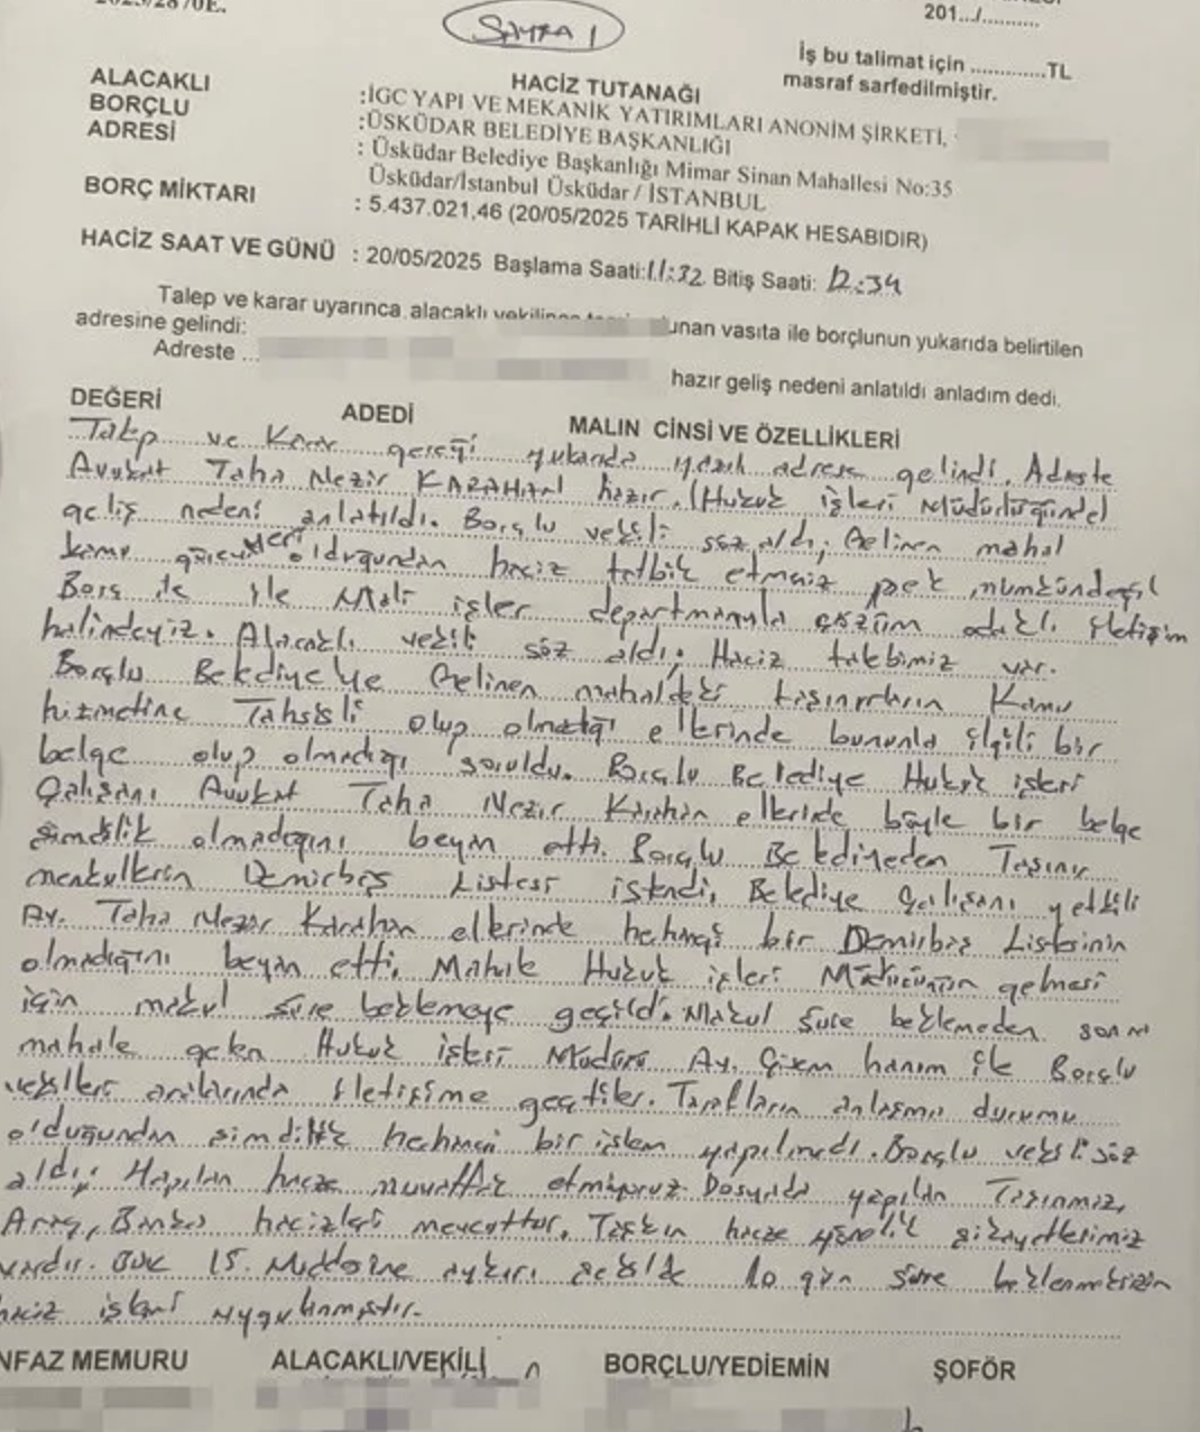 SAYFA 1
201.../...........
İş bu talimat için .............TL
masraf sarfedilmiştir.
HACİZ TUTANAĞI
ALACAKLI :İGC YAPI VE MEKANİK YATIRIMLARI ANONİM ŞİRKETİ,
BORÇLU :ÜSKÜDAR BELEDİYE BAŞKANLIĞI
ADRESİ : Üsküdar Belediye Başkanlığı Mimar Sinan Mahallesi No:35
Üsküdar/İstanbul Üsküdar / İSTANBUL
BORÇ MİKTARI : 5.437.021,46 (20/05/2025 TARİHLİ KAPAK HESABIDIR)
HACİZ SAAT VE GÜNÜ : 20/05/2025 Başlama Saati:11:32. Bitiş Saati: 12:34
Talep ve karar uyarınca alacaklı vekilince unan vasıta ile borçlunun yukarıda belirtilen
adresine gelindi:
Adreste ... hazır geliş nedeni anlatıldı anladım dedi.
DEĞERİ ADEDİ MALIN CİNSİ VE ÖZELLİKLERİ
Talep ve Karar gereği yukarıda yazılı adrese gelindi. Adreste
Avukat Taha Nezir KARAHAN hazır. (Hukuk işleri Müdürlüğünde)
geliş nedeni anlatıldı. Borçlu vekili söz aldı; Gelinen mahal
kamu görev yeri olduğundan haciz tatbik etmeniz pek mümkün değil
Borç ile ile Mali işler departmanıyla çözüm odaklı iletişim
halindeyiz. Alacaklı vekili söz aldı; Haciz talebimiz var.
Borçlu Belediyeye Gelinen mahaldeki taşınırların Kamu
hizmetine Tahsisli olup olmadığı ellerinde bununla ilgili bir
belge olup olmadığı soruldu. Borçlu Belediye Hukuk işleri
Çalışanı Avukat Taha Nezir Karahan ellerinde böyle bir belge
şimdilik olmadığını beyan etti. Borçlu Belediyeden Taşınır
menkullerin Demirbaş Listesi istendi, Belediye Çalışanı yetkili
Av. Taha Nezir Karahan ellerinde herhangi bir Demirbaş Listesinin
olmadığını beyan etti. Mahale Hukuk işleri Müdürünün gelmesi
için makul süre beklemeye geçildi. Makul süre beklemeden sonra
mahale gelen Hukuk işleri Müdürü Av. Çiğdem hanım ile Borçlu
vekilleri aralarında iletişime geçtiler. Tarafların anlaşma durumu
olduğundan şimdilik herhangi bir işlem yapılmadı. Borçlu vekili söz
aldı; Yapılan hacze muvafakat etmiyoruz. Dosyada yapılan Taşınmaz,
Araç, Banka hacizleri mevcuttur. Taşkın hacze yönelik şikayetlerimiz
vardır. 15. Maddesine aykırı şekilde 10 gün süre beklenmeksizin
haciz işlemi uygulanmıştır.
NFAZ MEMURU ALACAKLI/VEKİLİ BORÇLU/YEDİEMİN ŞOFÖR